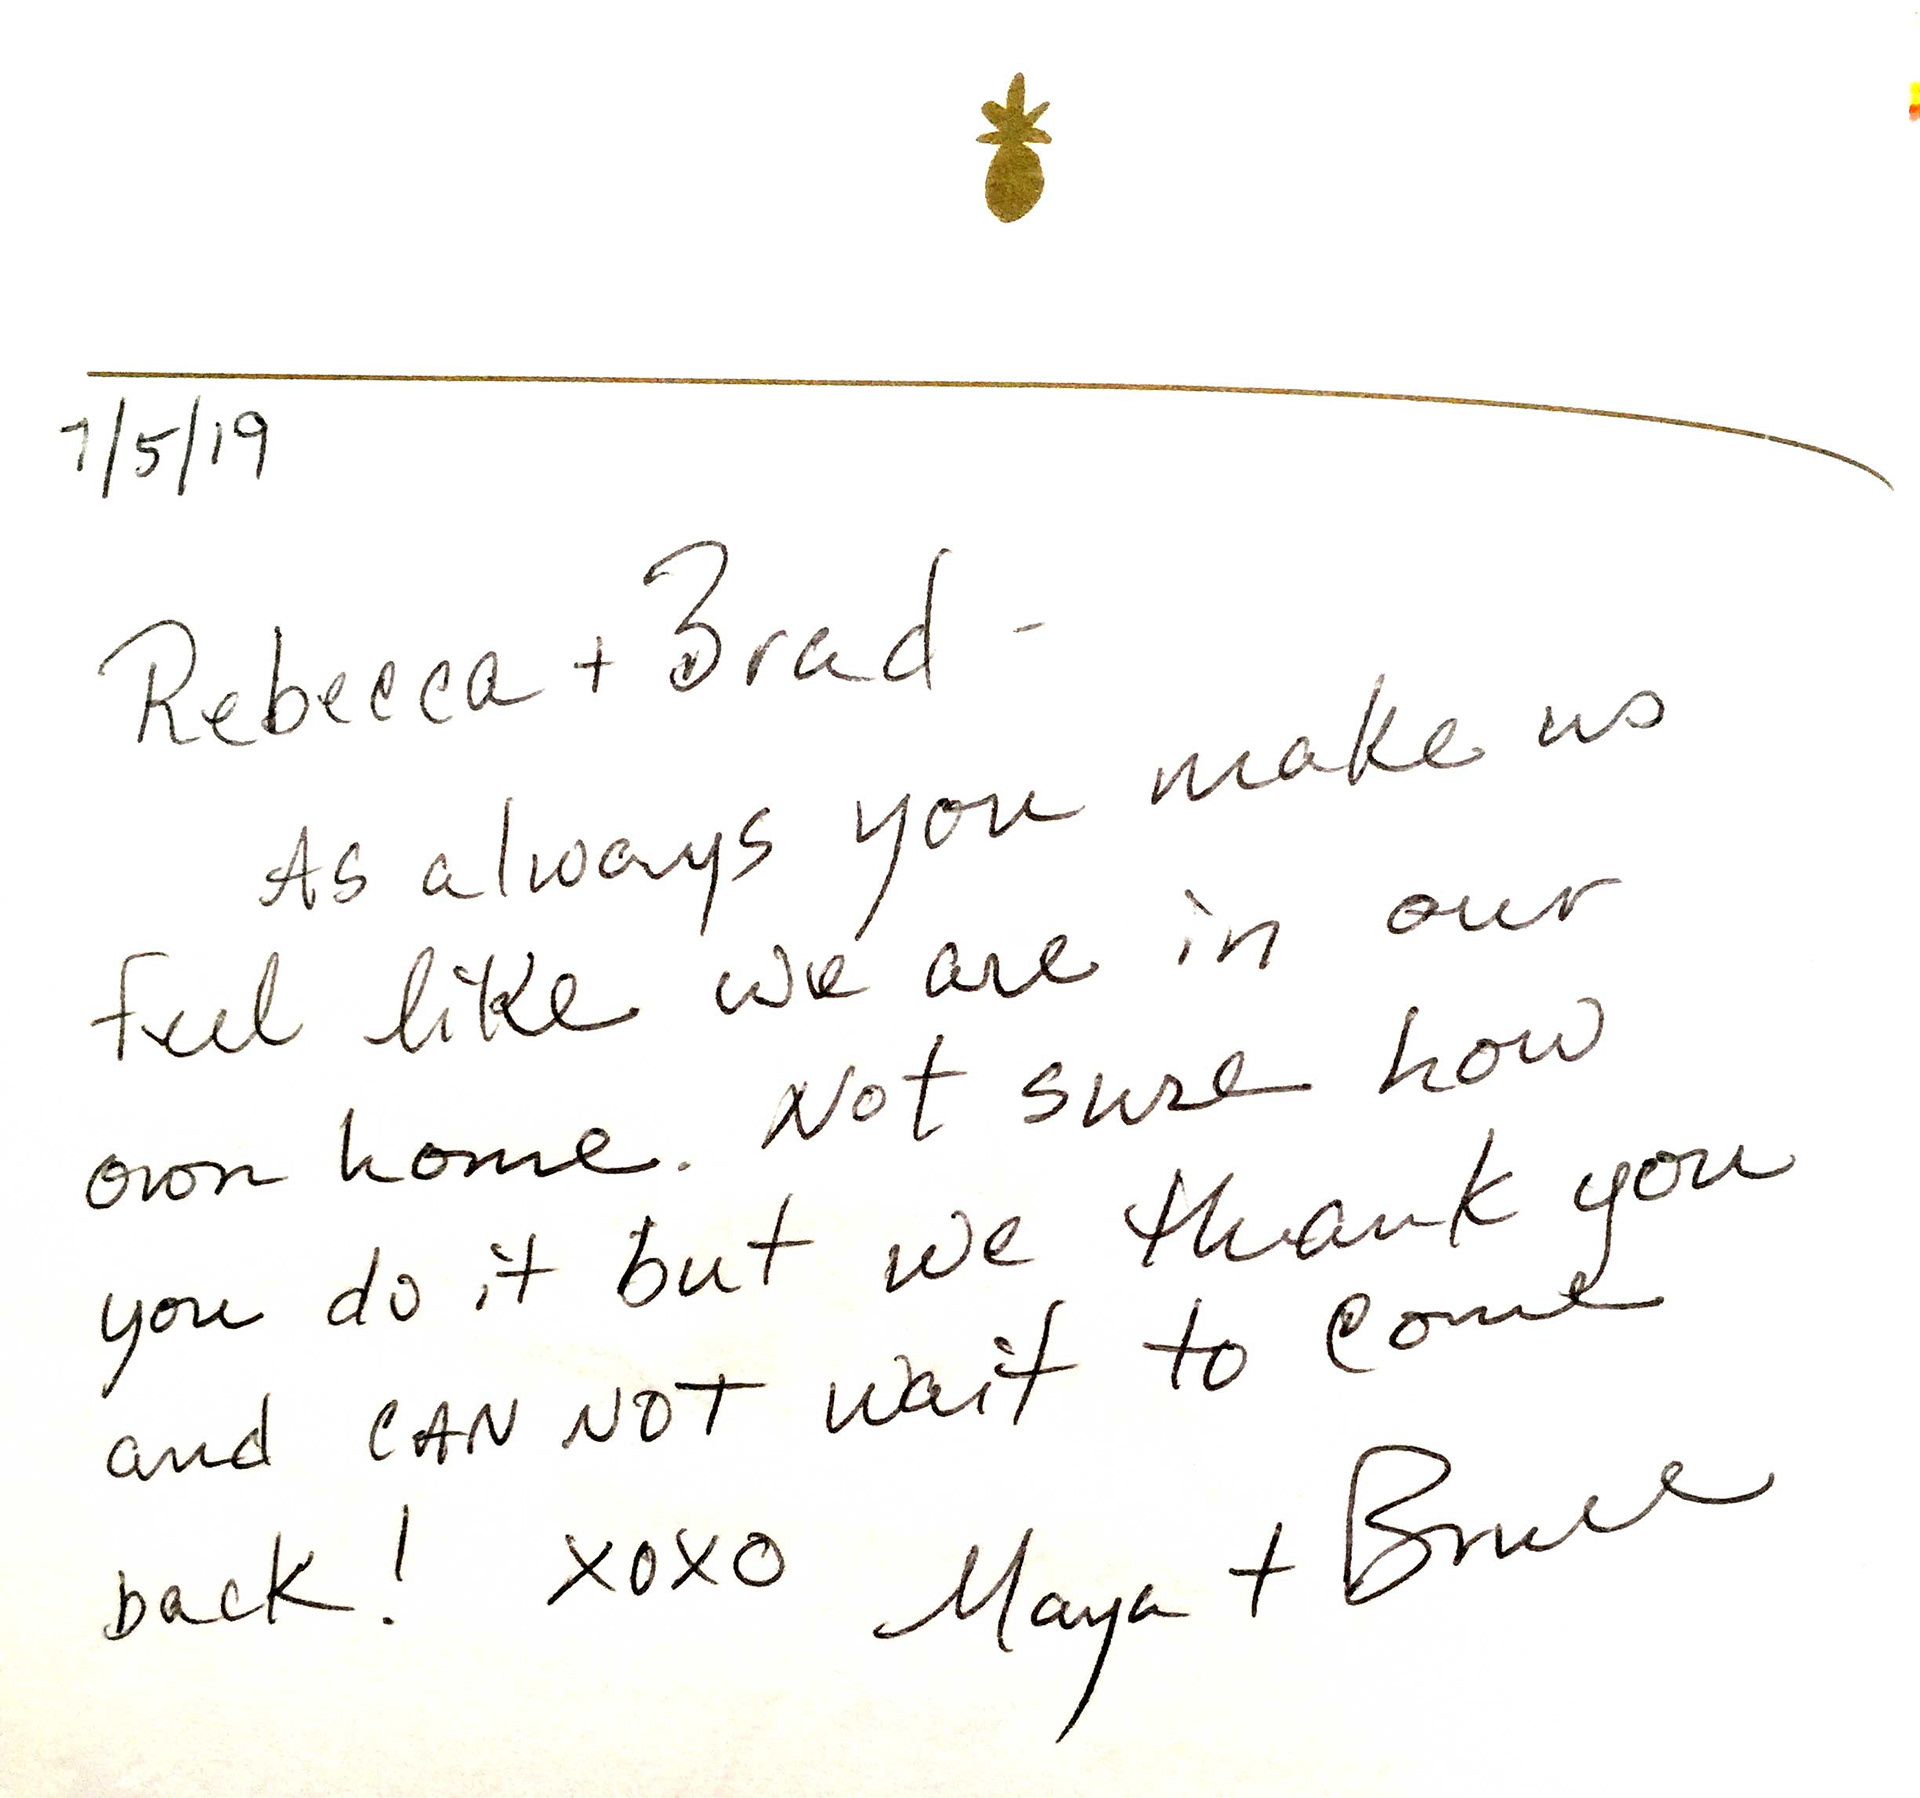 7/5/19
Rebecca + Brad -
As always you make us
feel like we are in our
own home. Not sure how
you do it but we thank you
and CAN NOT wait to come
back! XOXO Maya + Bruce